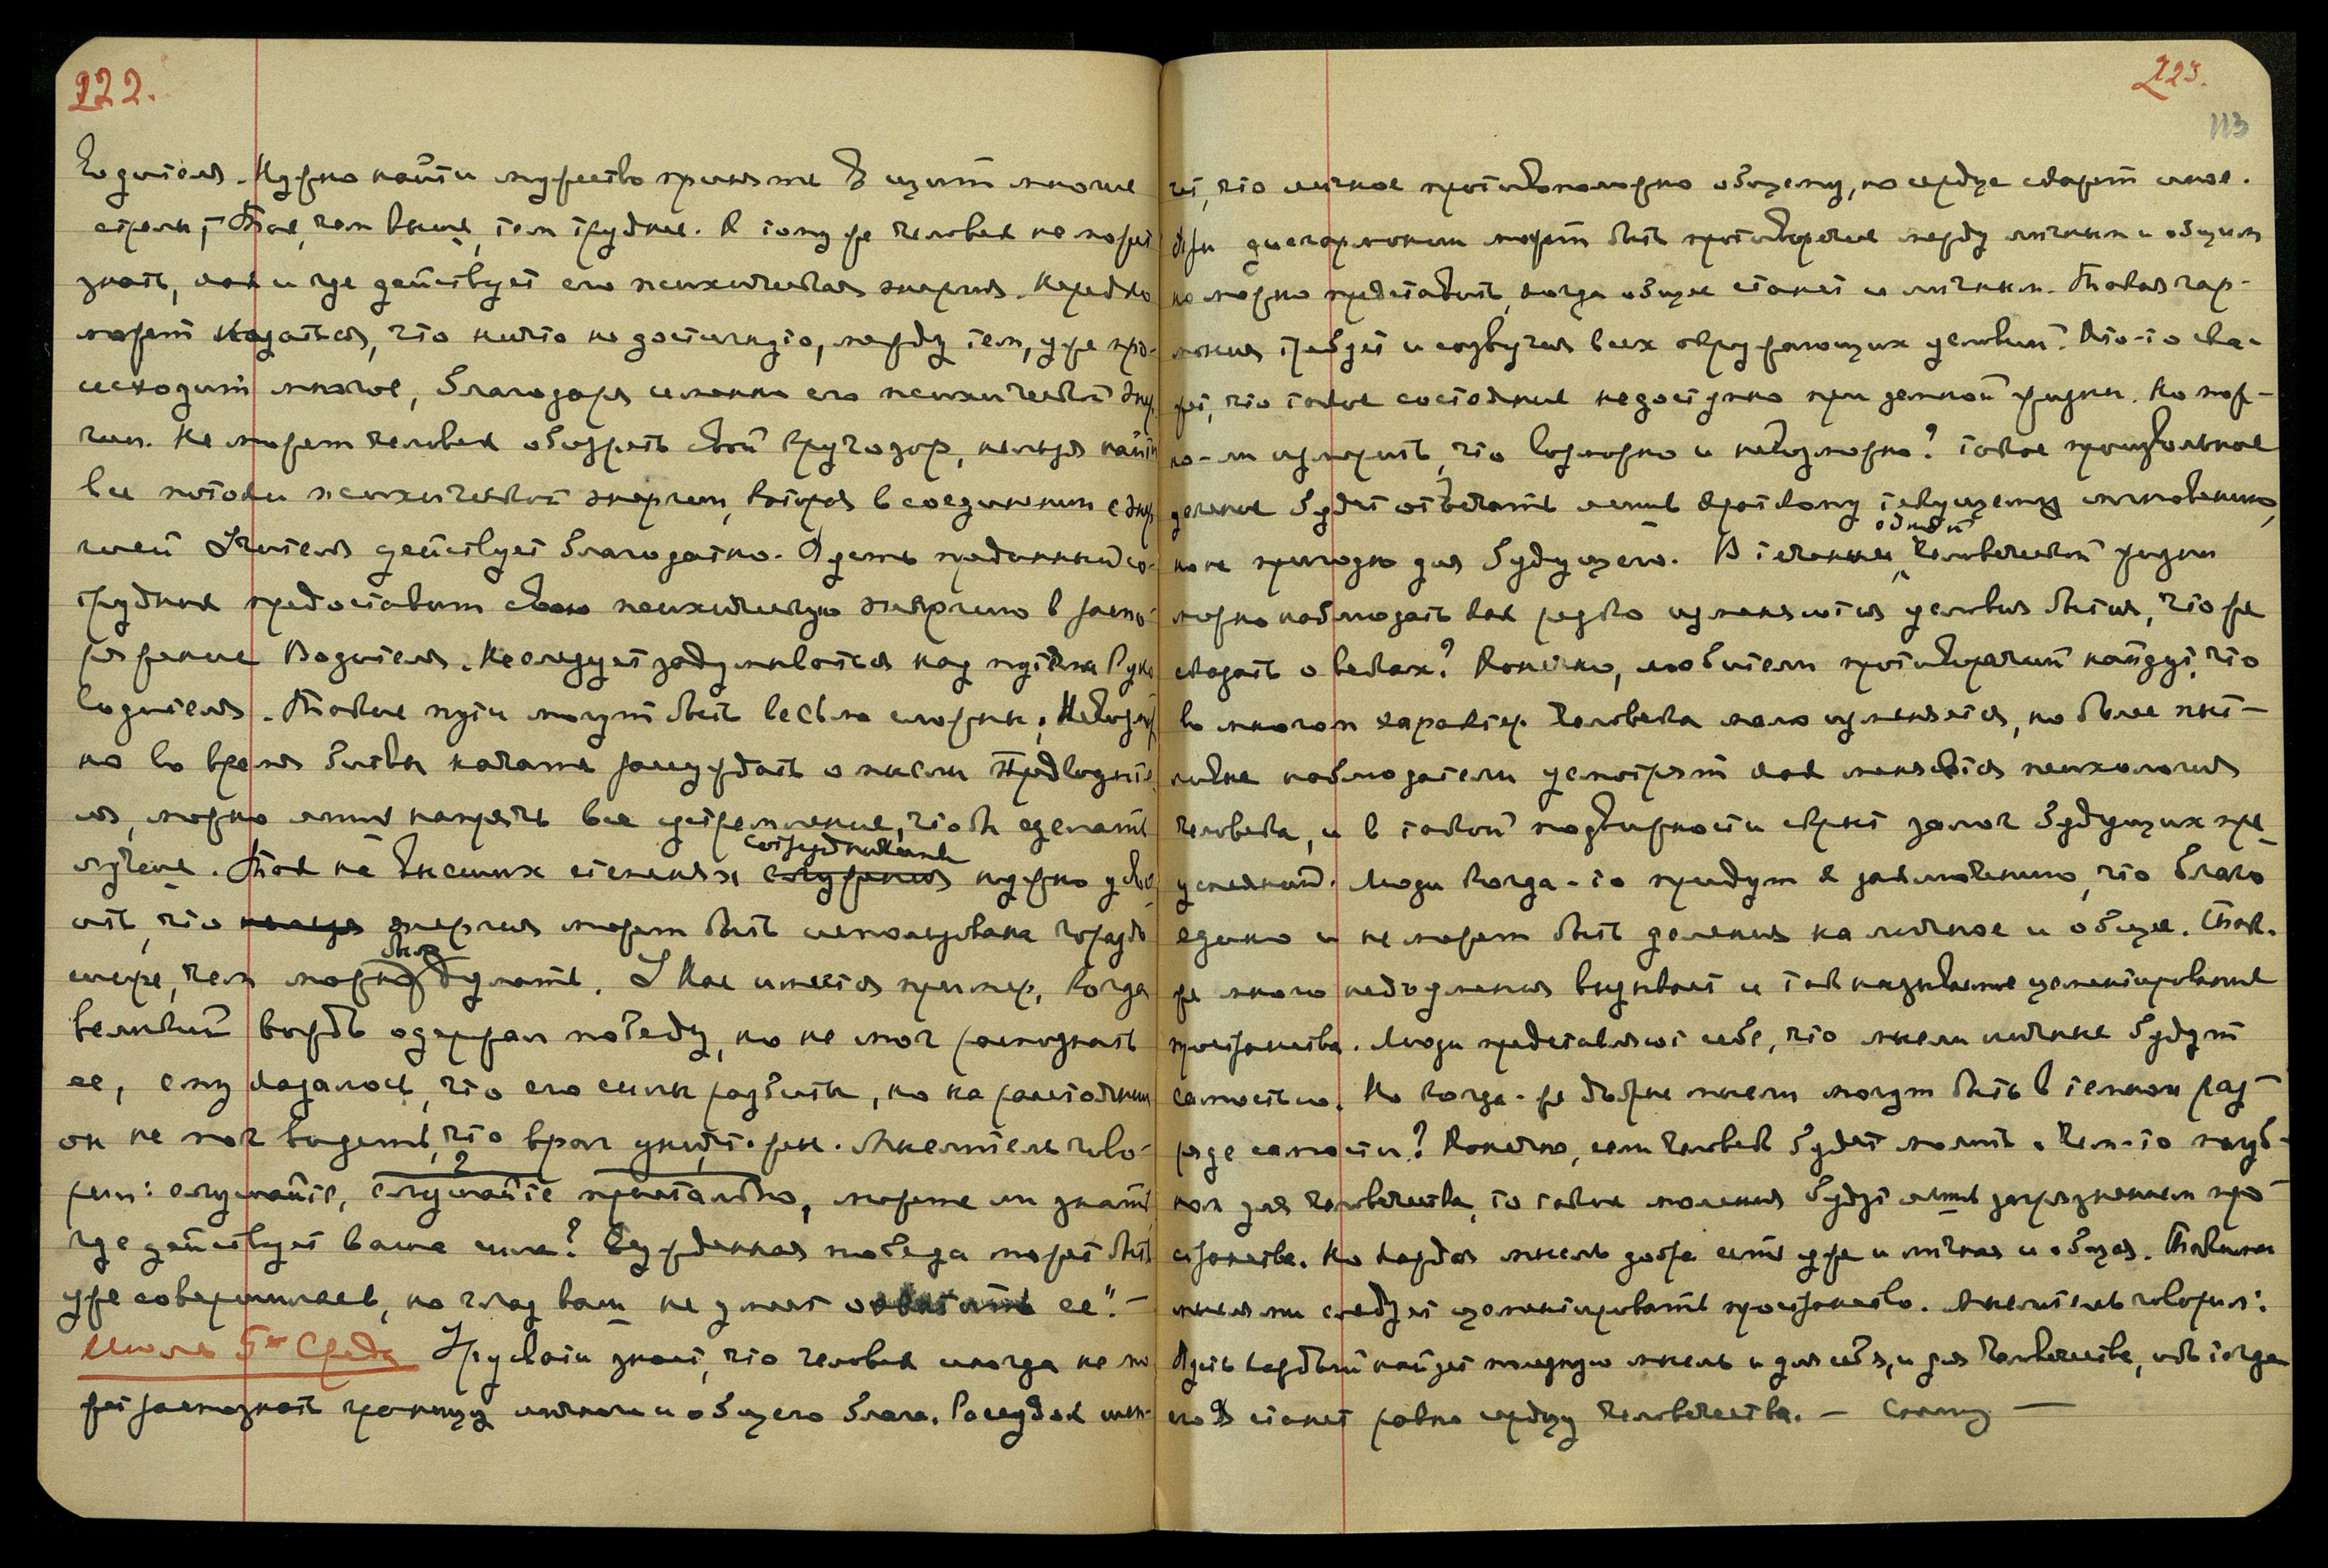 222.
водителя. Нужно найти мужество принять в щит многие
стрелы, Так, чем выше, тем труднее. К тому же человек не может
знать, как и где действует его психическая энергия. Нередко
может казаться, что ничто не достигнуто, между тем, уже про-
исходит многое, благодаря именно его психической энер-
гии. Не может человек обозреть свой кругозор, нельзя найти
все потоки психической энергии, которая в соединении с энер-
гией Учителя действует благодатно. Пусть преданный со-
трудник предоставит свою психическую энергию в распо-
ряжение Водителя. Не следует задумываться над путями Руко
водителя. Такие пути могут быть весьма сложны. Невозмож
но во время битвы начать рассуждать о мысли Предводите
ля, можно лишь напрячь все устремление, чтобы сделать
лучше. Так на высших степенях сотрудничества нужно усво-
ить, что энергия может быть использована гораздо
шире, чем можно было думать. У Нас имеется пример, когда
великий вождь одержал победу, но не мог распознать
ее, ему казалось, что его силы разбиты, но на расстоянии
он не мог видеть, что враг уничтожен. Мыслитель гово-
рил: слушайте, слушайте пристально, можете ли знать,
где действует ваша сила? Безудержная победа может быть
уже совершилась, но глаз ваш не умеет охватить ее". —
Июль 5го Среда Урусвати знает, что человек иногда не мо
жет распознать границу личного и общего блага. Рассудок шеп-
223.
113
чет, что личное противоположно общему, но сердце скажет иное.
При дисгармонии может быть противоречие между личным и общим
но можно представить, когда общее станет и личным. Такая гар-
мония требует и созвучия всех окружающих условий. Кто-то ска-
жет, что такое состояние недоступно при земной жизни. Но мож-
но-ли измерить, что возможно и невозможно? такое произвольное
деление будет отвечать лишь краткому текущему мгновению,
но не пригодно для будущего. В течении одной человеческой жизни
можно наблюдать как резко изменяются условия бытия, что же
сказать о веках? Конечно, любители противоречий найдут, что
во многом характер человека мало изменяется, но более пыт-
ливые наблюдатели усмотрят как меняется психология
человека, и в такой подвижности скрыт залог будущих пре-
успеяний. Люди когда-то придут к заключению, что благо
едино и не может быть деления на личное и общее. Так-
же много недоумения вызывает и так называемое цементирование
пространства. Люди представляют себе, что мысли личные будут
самостью. Но когда-же добрые мысли могут быть в темном раз-
ряде самости? Конечно, если человек будет молить о чем-то пагуб-
ном для человечества, то такие моления будут лишь загрязнением про-
странства. Но каждая мысль добра есть уже и личная и общая. Такими
мыслями следует цементировать пространство. Мыслитель говорил:
Пусть каждый найдет полезную мысль и для себя, и для человечества, ибо тогда
его Я станет равно сердцу человечества. —